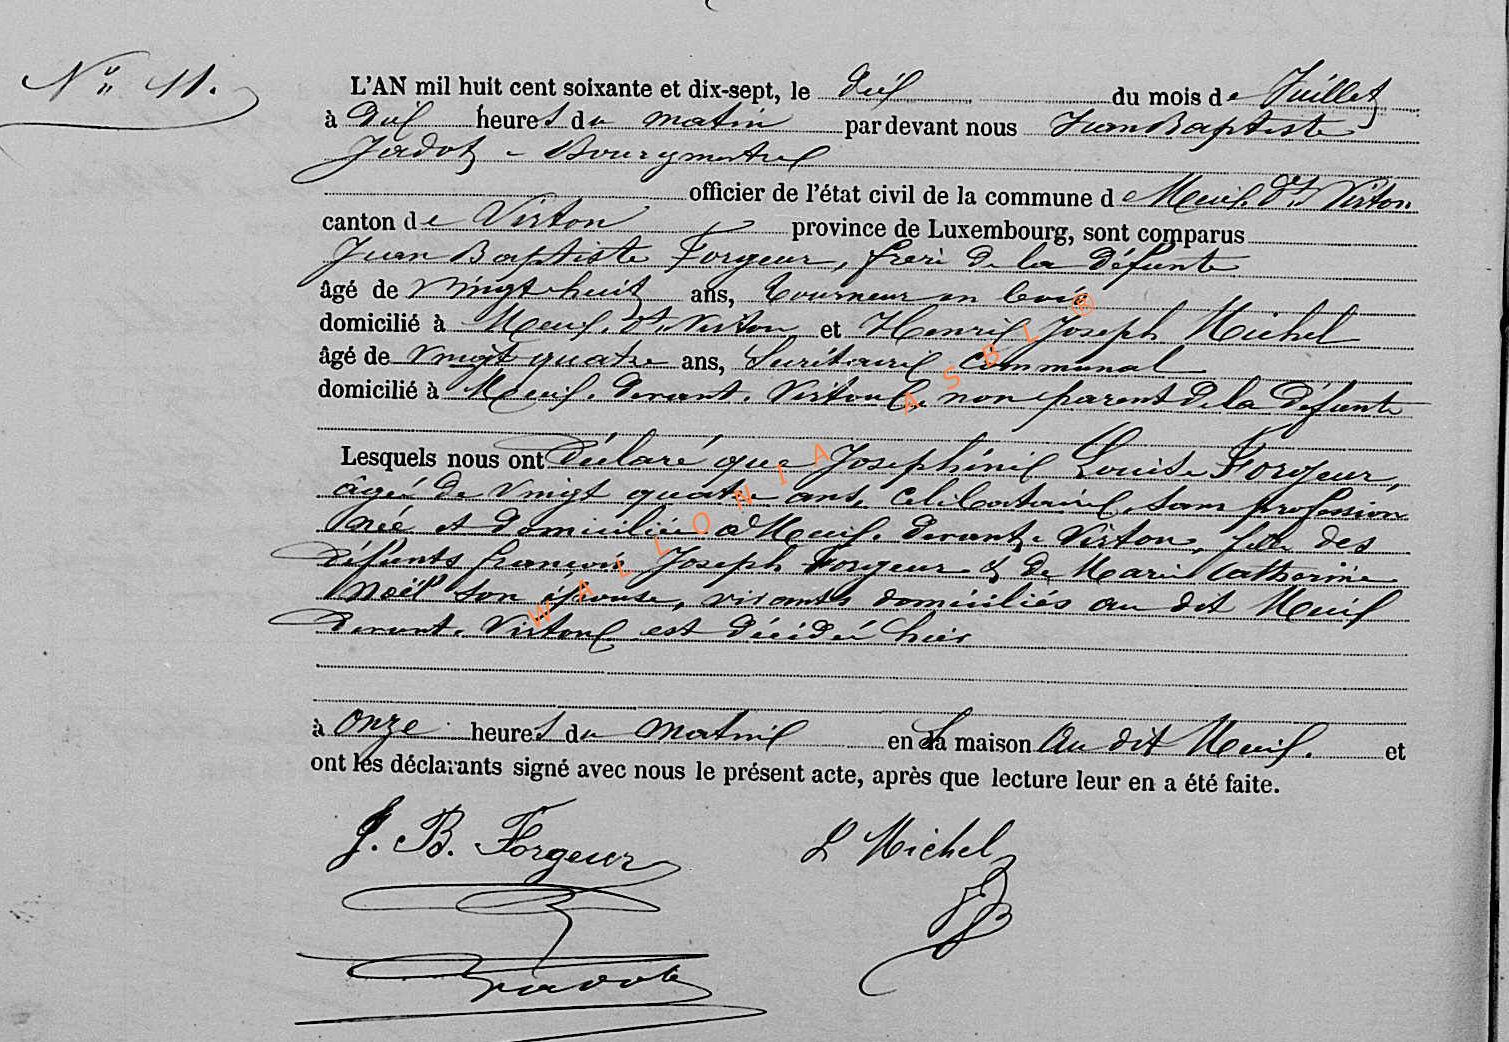 N° 11.
L'AN mil huit cent soixante et dix-sept, le dix du mois de Juillet
à dix heures du matin pardevant nous Jean Baptiste
Jadot, Bourgmestre
officier de l'état civil de la commune de Meix dt Virton
canton de Virton province de Luxembourg, sont comparus
Jean Baptiste Forgeur, frère de la défunte
âgé de vingt-huit ans, tourneur en bois
domicilié à Meix dt Virton et Henri Joseph Michel
âgé de vingt quatre ans, Secrétaire communal
domicilié à Meix devant Virton, non parent de la défunte
Lesquels nous ont déclaré que Joséphine Louise Forgeur,
âgée de vingt quatre ans, célibataire, sans profession
née et domiciliée à Meix devant Virton, fille des
défunts François Joseph Forgeur & de Marie Catherine
Noël son épouse, vivants domiciliés au dit Meix
devant Virton est décédée hier
à onze heures du matin en sa maison au dit Meix. et
ont les déclarants signé avec nous le présent acte, après que lecture leur en a été faite.
J. B. Forgeur Michel
Jadot
WALLONIA ASBL ®